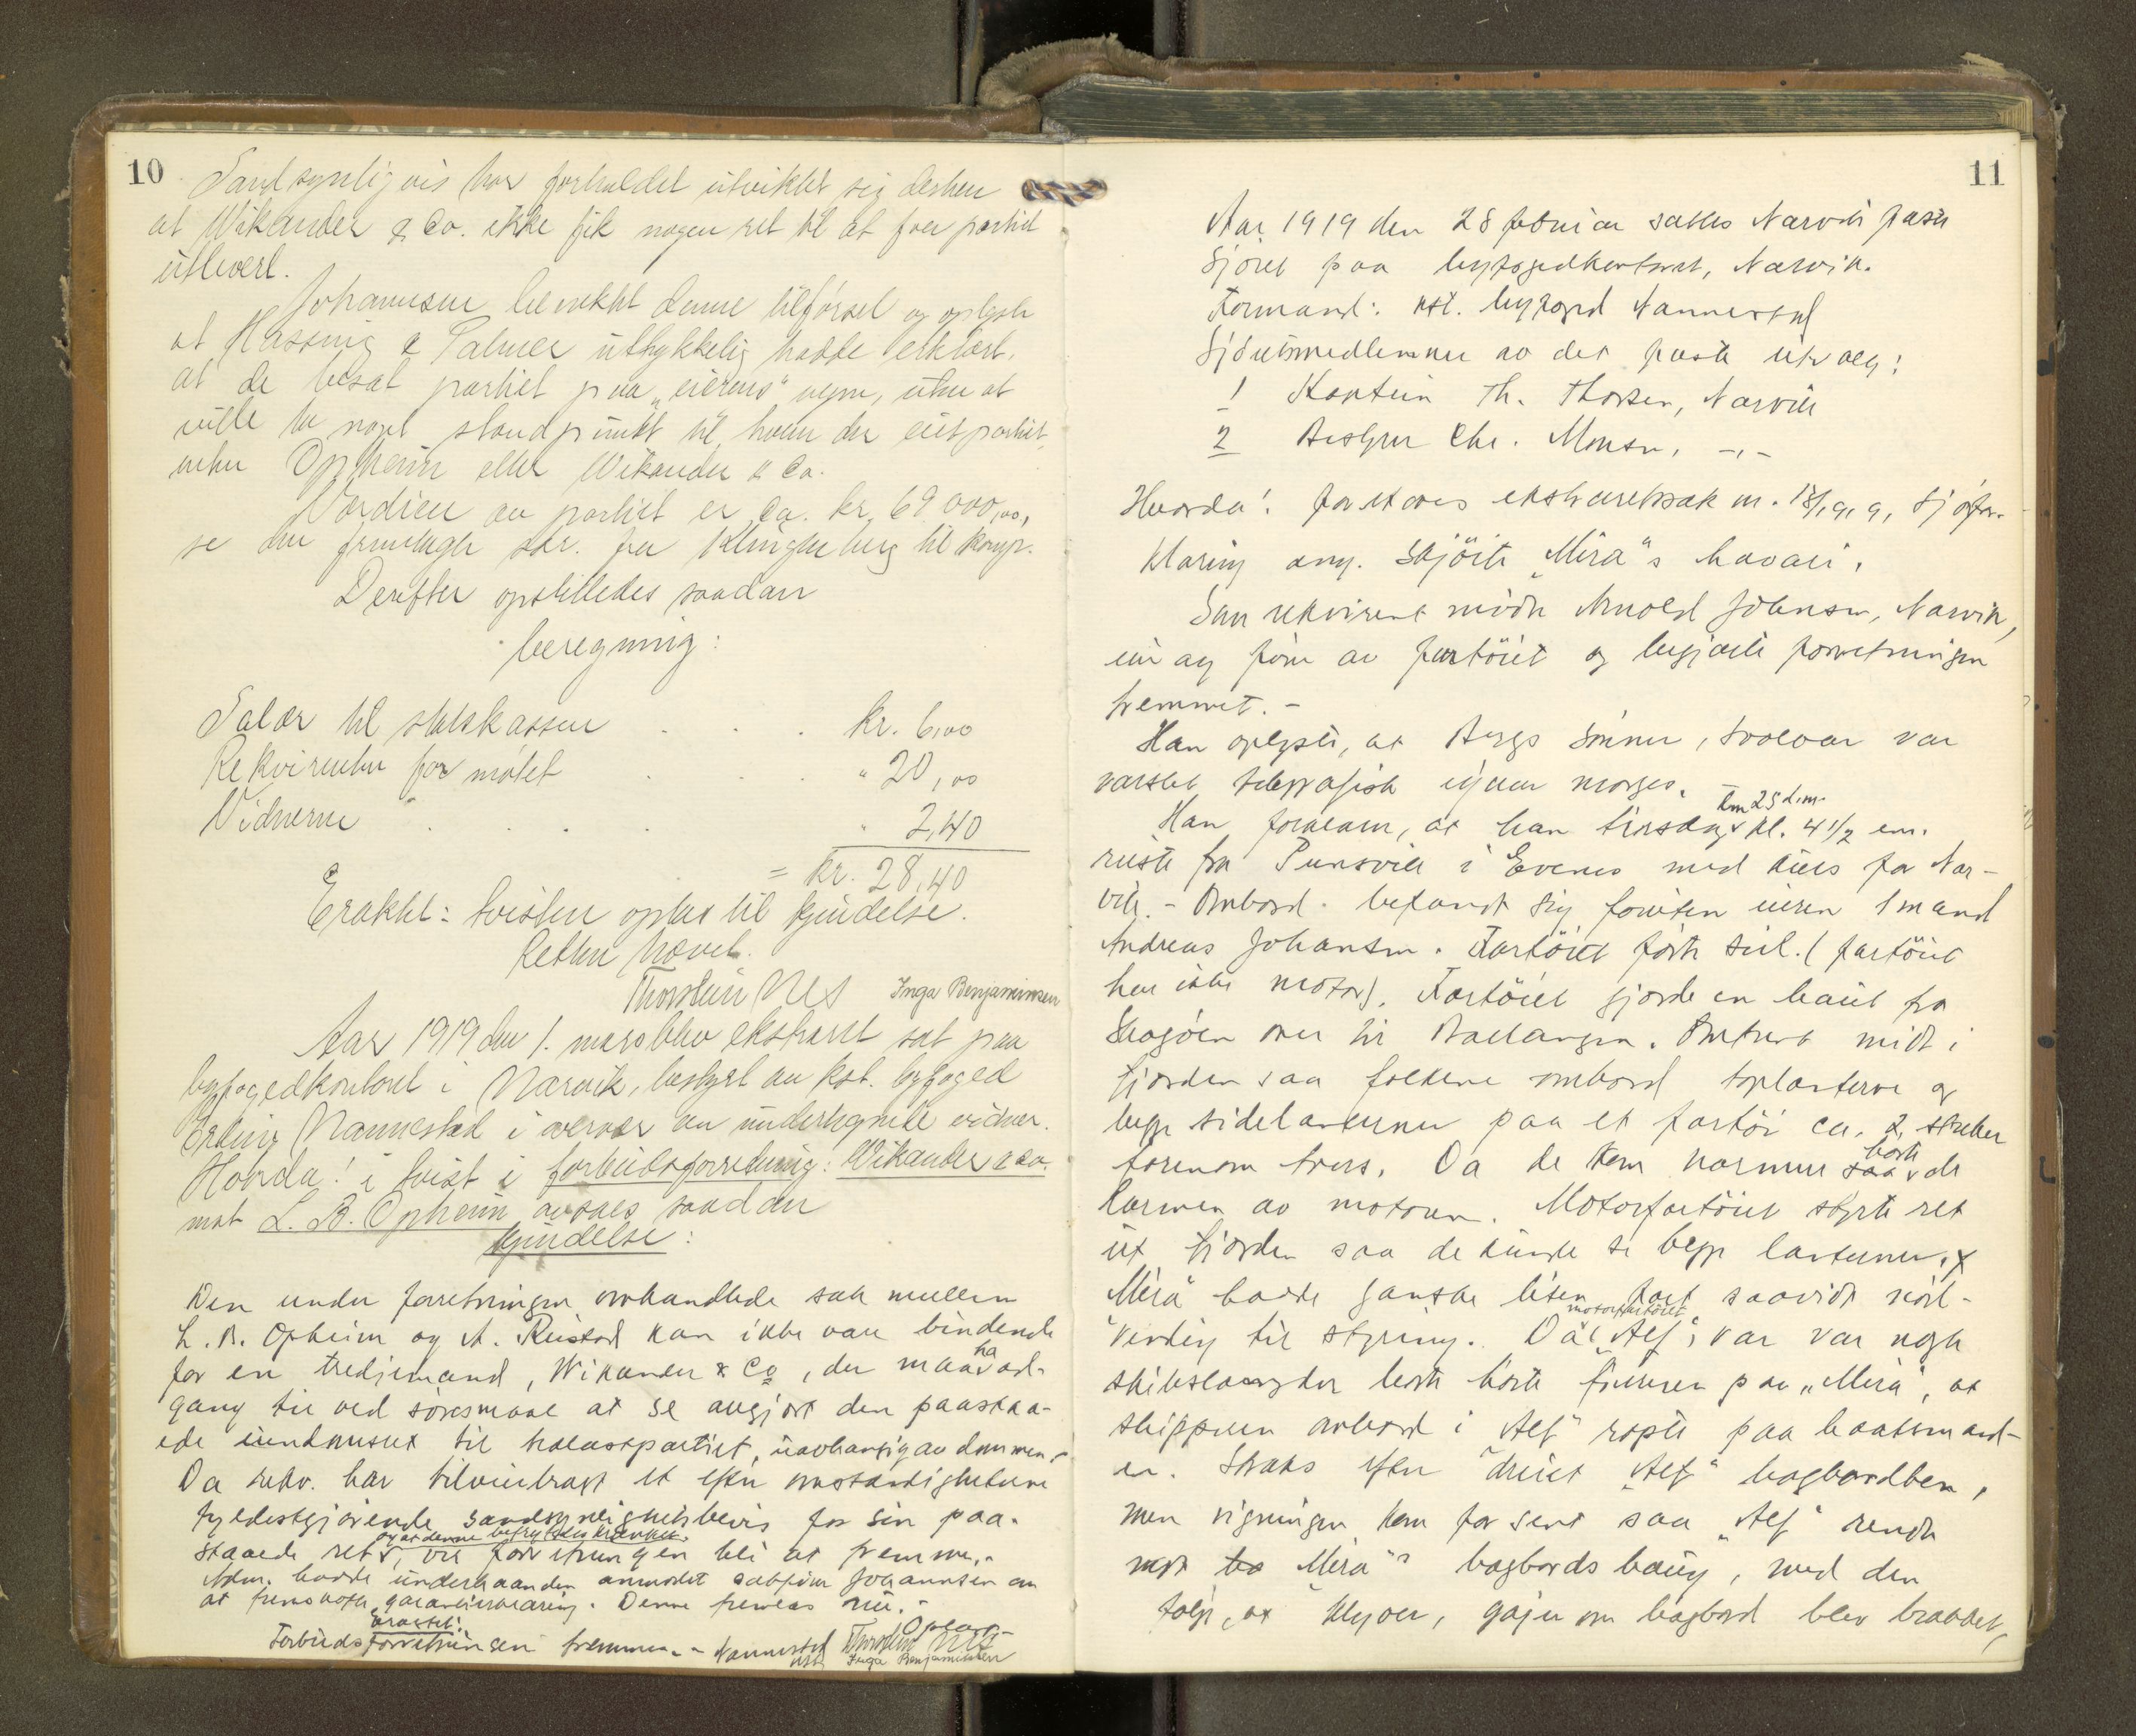 10
Sandsynligvis har forholdet utviklet sig derhen
at Wikander & Co. ikke fik nogen ret til at faa partiet
utlevert.
Johannsen benektet denne tilførsel og oplyste
at Hassing & Palmer uttrykkelig hadde erklært,
at de besat partiet paa „eierens" vegne, uten at
ville ta noget standpunkt til, hvem der eiet partiet,
enten Opheim eller Wikander & Co.
Værdien av partiet er ca. kr. 69 000,00,
se den fremlagte skr. fra Klingenberg til komp.
Derefter opstilledes saadan
beregning:
Salær til statskassen . . . kr. 6,00
Rekvirenten for møtet . . . " 20,00
Vidnerne . . . " 2,40
= kr. 28,40
Eraktet: tvisten optas til kjendelse.
Retten hævet.
Thorstein Nes Inga Benjaminsen
Aar 1919 den 1. mars blev ekstraret sat paa
byfogedkontoret i Narvik, bestyrt av kst. byfoged
Erling Nannestad i overvær av undertegnede vidner.
Hvorda! i tvist i forbudsforretning: Wikander & Co.
mot L. B. Opheim avsaes saadan
kjendelse:
Den under forretningen omhandlede sak mellem
L. B. Opheim og A. Rustad kan ikke være bindende
for en tredjemand, Wikander & Co, der maa ha ad-
gang til ved søksmaal at se avgjort den paastaa-
ede eiendomsret til partiet, uavhængig av dommen.-
Da rekv. har tilveiebragt et efter omstændigheterne
fyldestgjørende sandsynlighetsbevis for sin paa-
staaede ret og at denne befryktes krænket, vil forretningen bli at fremme.-
Adm. hadde underhaanden anmodet sakfører Johannsen om
at fremskaffe garantierklæring. Denne fremlas nu.-
Oplæst-
eraktet:
Forbudsforretningen fremmes.- Nannestad Thorstein Nes
kst. Inga Benjaminsen
11
Aar 1919 den 28 februar sattes Narvik faste
sjøret paa byfogedkontoret, Narvik.
Formand: kst. byfoged Nannestad
Sjøretsmedlemmer av det faste utvalg:
1 Kaptein Th. Thorsen, Narvik
2 Bestyrer Chr. Monsen, -„-
Hvorda! foretoges ekstraretssak nr. 13/1919, sjøfor-
klaring ang. skjøite „Mira"s havari.
Som rekvirent møtte Arnold Johnsen, Narvik,
eier og fører av fartøiet og begjærte forretningen
fremmet.-
Han oplyste, at Bergs Sønner, Svolvær var
varslet telegrafisk igaar morges.
Han forklarer, at han tirsdag den 25 d.m. kl. 4 1/2 em.
reiste fra i Evenes med kurs for Nar-
vik.- Ombord befandt sig foruten eieren 1 mand
Andreas Johansen. Fartøiet førte seil. (fartøiet
har ikke motor). Fartøiet gjorde en baut fra
over til Ballangen. Omtrent midt i
fjorden saa folkene ombord toplanterne og
begge sidelanterner paa et fartøi ca. 2 streker
forenom tvers. Da de kom nærmere hørte de
larmen av motoren. Motorfartøiet styrte ret
ut fjorden saa de kunde se begge lanterner. x
„Mira" hadde ganske liten fart saavidt nød-
vendig til styring. Da motorfartøiet „Alf" var nogen
skibslængder borte hørte føreren paa „Mira", at
skipperen ombord i „Alf" ropte paa baatsmand-
en. Straks efter dreiet „Alf" bagbord over,
men vigningen kom for sent saa „Alf" rendte
mot „Mira"s bagbords baug, med den
følge, at klyver, om bagbord blev brækket,